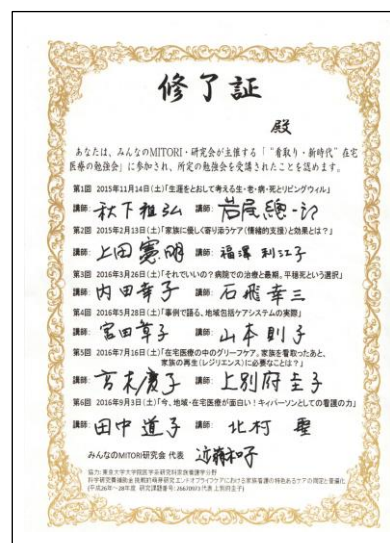 修了証
殿
あなたは、みんなのMITORI・研究会が主催する「“看取り・新時代”在宅
医療の勉強会」に参加され、所定の勉強会を受講されたことを認めます。
第1回 2015年11月14日(土)「生涯をとおして考える生・老・病・死とリビングウィル」
講師: 秋下雅弘 講師: 岩尾總一郎
第2回 2015年2月13日(土)「家族に優しく寄り添うケア(情緒的支援)と効果とは?」
講師: 上田憲明 講師: 福澤利江子
第3回 2016年3月26日(土)「それでいいの?病院での治療と最期。平穏死という選択」
講師: 内田幸子 講師: 石飛幸三
第4回 2016年5月28日(土)「事例で語る、地域包括ケアシステムの実際」
講師: 宮田章子 講師: 山本則子
第5回 2016年7月16日(土)「在宅医療の中のグリーフケア。家族を看取ったあと、
家族の再生(レジリエンス)に必要なことは?」
講師: 高木慶子 講師: 上別府圭子
第6回 2016年9月3日(土)「今、地域・在宅医療が面白い!キイパーソンとしての看護の力」
講師: 田中道子 講師: 北村聖
みんなのMITORI研究会 代表 近藤和子
協力:東京大学大学院医学系研究科家族看護学分野